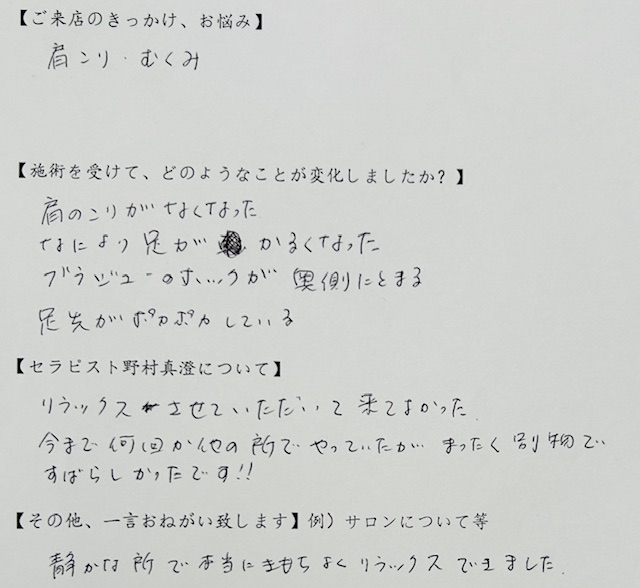 【ご来店のきっかけ、お悩み】
肩コリ・むくみ
【施術を受けて、どのようなことが変化しましたか？】
肩のコリがなくなった
なにより足がかるくなった
ブラジューのホックが奥側にとまる
足先がポカポカしている
【セラピスト野村真澄について】
リラックスさせていただいて来てよかった.
今まで何回か他の所でやっていたがまったく別物で
すばらしかったです!!
【その他、一言おねがい致します】例）サロンについて等
静かな所で本当にきもちよくリラックスできました.